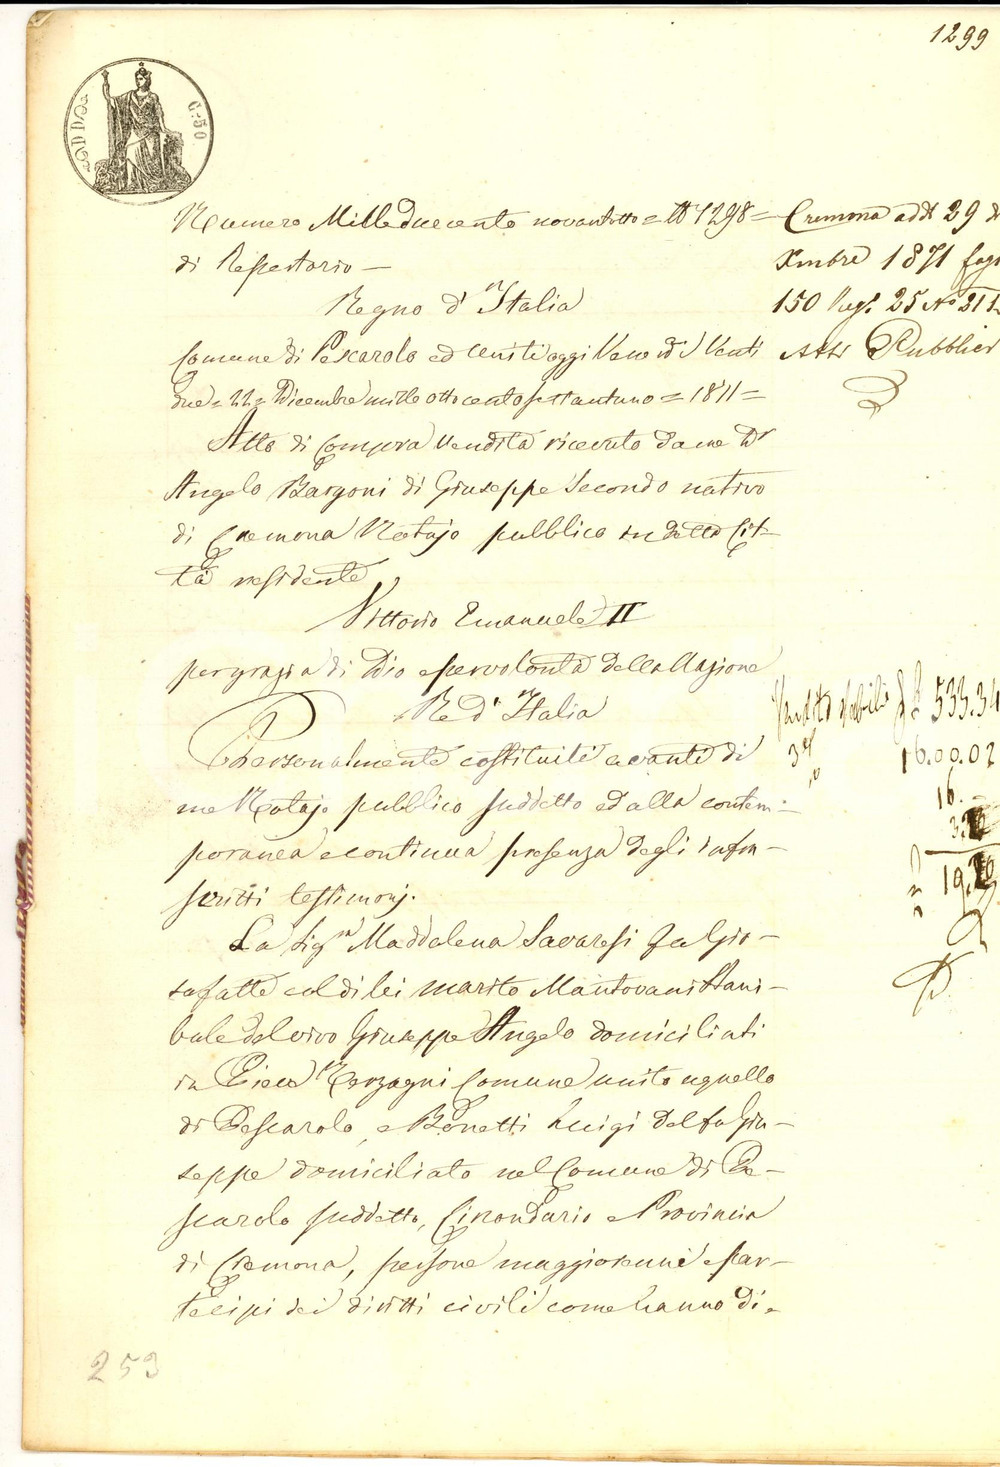 1299
C. 50
Numero Milleduecento novantotto = N 1298 =
di Repertorio —
Regno d'Italia
Comune di Pescarolo ed Uniti oggi Venerdì Venti
due = 22 = Dicembre mille ottocento settantuno = 1871 =
Atto di Compra Vendita ricevuto da me Dr
Angelo Bargoni di Giuseppe Secondo nativo
di Cremona Notajo pubblico in detta Cit-
tà residente
Vittorio Emanuele II
per grazia di Dio e per volontà della Nazione
Re d'Italia
Personalmente costituiti avanti di
me Notajo pubblico suddetto ed alla contem-
poranea e continua presenza degli infra-
scritti testimonj.
La Sigra Maddalena Savaresi fu Gio-
safatte col di lei marito Mantovani Anni-
bale del vivo Giuseppe Angelo domiciliati
in Pieve Terzagni Comune unito a quello
di Pescarolo, e Bonetti Luigi del fu Giu-
seppe domiciliato nel Comune di Pe-
scarolo suddetto, Circondario e Provincia
di Cremona, persone maggiorenni e par-
tecipi dei diritti civili come hanno di-
253
Cremona addì 29 d
Xmbre 1871 fog
150 Vol. 25 No 21
Atti Pubblici
533.34
16.00.02
16. –
19.